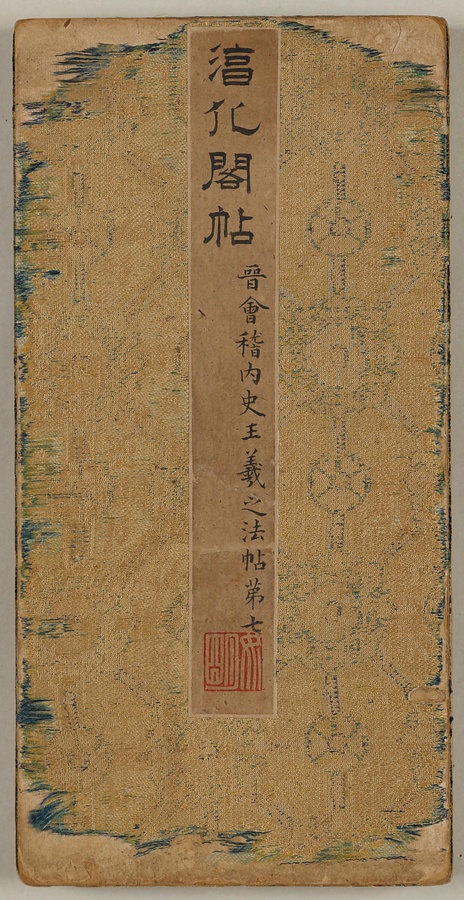 淳化閣帖
晉會稽内史王羲之法帖第七